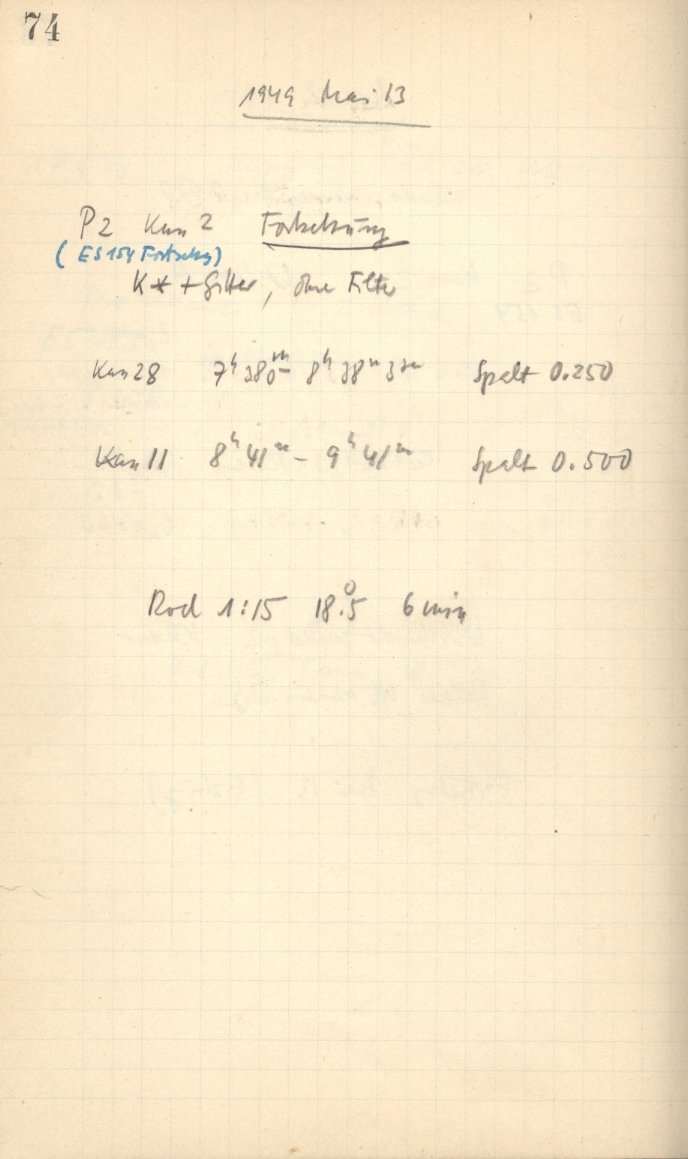 74
1949 Mai 13
P2 Kan 2 Fortsetzung
(ES 154 Fortsetzg)
K* + Gitter, ohne Filter
Kan 28 7ʰ 38 – 8ʰ 38ᵐ Spalt 0.250
Kan 11 8ʰ 41ᵐ – 9ʰ 41ᵐ Spalt 0.500
Rod 1:15 18.°5 6 min